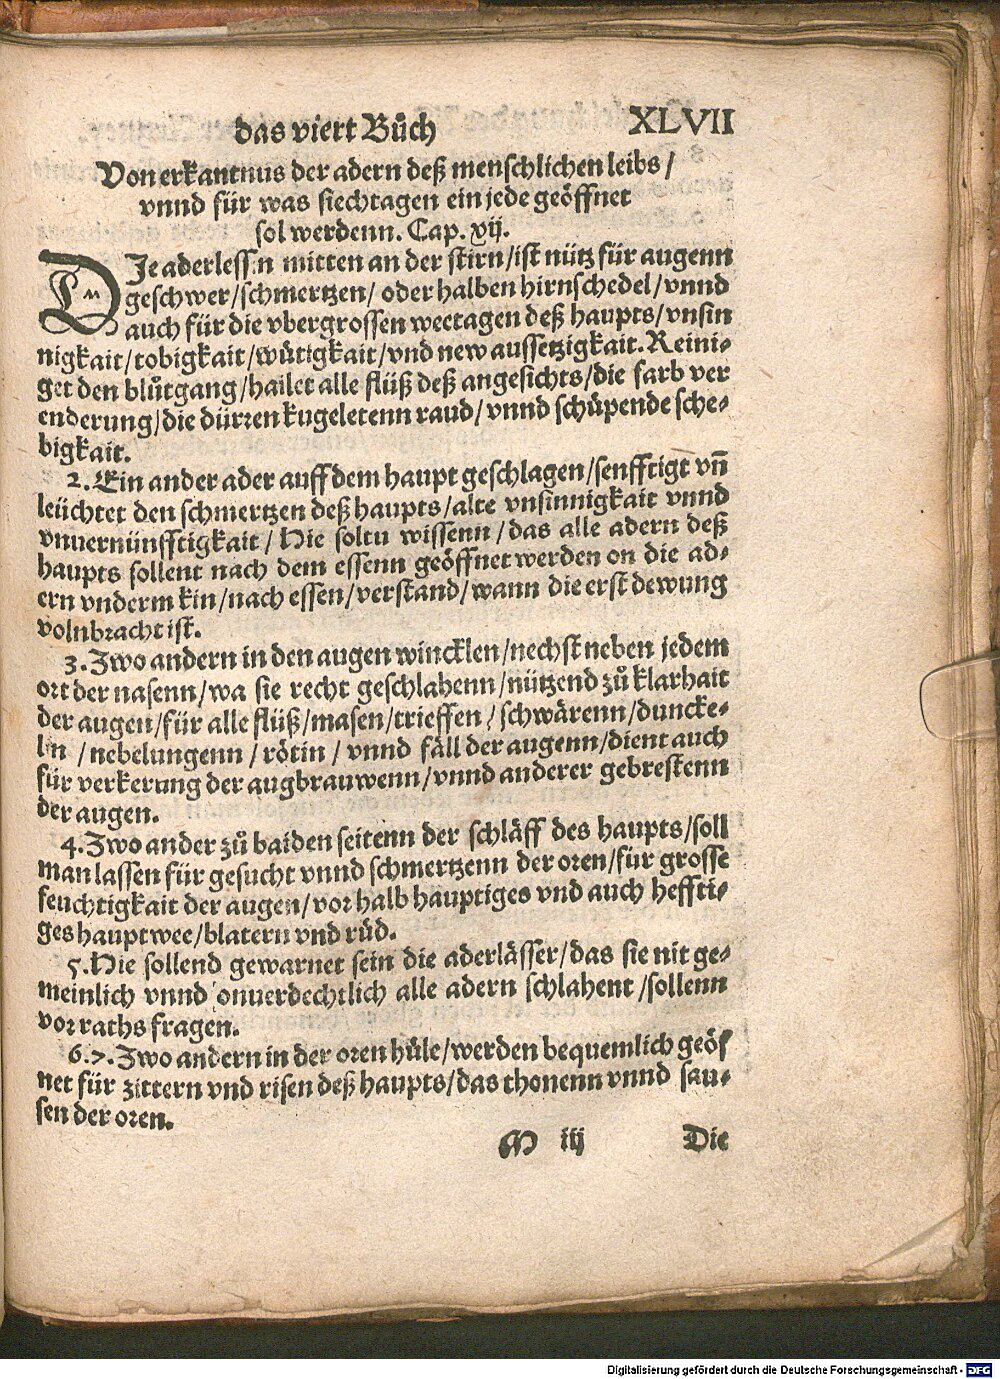 das viert Bůch XLVII
Von erkantnus der adern deß menschlichen leibs /
vnnd für was siechtagen ein jede geöffnet
sol werdenn. Cap. xij.
DIe aderlessen mitten an der stirn / ist nütz für augenn
geschwer / schmertzen / oder halben hirnschedel / vnnd
auch für die vbergrossen weetagen deß haupts / vnsin
nigkait / tobigkait / wütigkait / vnd new aussetzigkait. Reini⸗
get den blůtgang / hailet alle flüß deß angesichts / die farb ver
enderung / die dürren kugeletenn raud / vnnd schüpende sche⸗
bigkait.
2. Ein ander ader auff dem haupt geschlagen / senfftigt vñ
leüchtet den schmertzen deß haupts / alte vnsinnigkait vnnd
vnuernünfftigkait / Hie soltu wissenn / das alle adern deß
haupts sollent nach dem essenn geöffnet werden on die ad⸗
ern vnderm kin / nach essen / verstand / wann die erst dewung
volnbracht ist.
3. Zwo andern in den augen wincklen / nechst neben jedem
ort der nasenn / wa sie recht geschlahenn / nützend zů klarhait
der augen / für alle flüß / masen / trieffen / schwärenn / duncke⸗
ln / nebelungenn / rötin / vnnd fäll der augenn / dient auch
für verkerung der augbrauwenn / vnnd anderer gebrestenn
der augen.
4. Zwo ander zů baiden seitenn der schläff des haupts / soll
man lassen für gesucht vnnd schmertzenn der oren / für grosse
feuchtigkait der augen / vor halb hauptiges vnd auch heffti⸗
ges hauptwee / blatern vnd rüd.
5. Hie sollend gewarnet sein die aderlässer / das sie nit ge⸗
meinlich vnnd onuerdechtlich alle adern schlahent / sollenn
vor raths fragen.
6. 7. Zwo andern in der oren hüle / werden bequemlich geöf
net für zittern vnd risen deß haupts / das thonenn vnnd sau⸗
sen der oren.
M iij Die
Digitalisierung gefördert durch die Deutsche Forschungsgemeinschaft - DFG